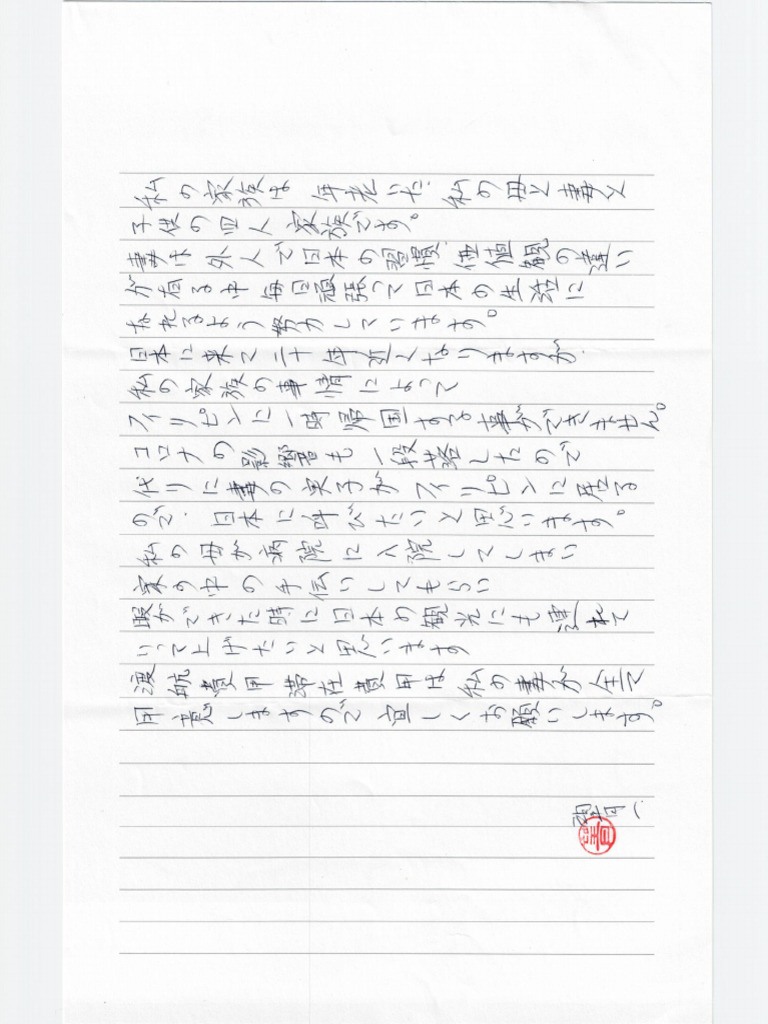 私の家族は年老いた私の母と妻と
子供の四人家族です。
妻は外人で日本の習慣、価値観の違い
が有る中毎日頑張って日本の生活に
なれるよう努力しています。
日本に来て二十年近くなりますが
私の家族の事情によって
フィリピンに一時帰国する事ができません。
コロナの影響も一段落したので
代りに妻の実子がフィリピンに居る
ので、日本に呼びたいと思います。
私の母が病院に入院してしまい
家の中の手伝いしてもらい
暇ができた時に日本の観光にも連れて
いって上げたいと思います
渡航費用滞在費用は私の妻が全て
用意しますので宜しくお願いします。